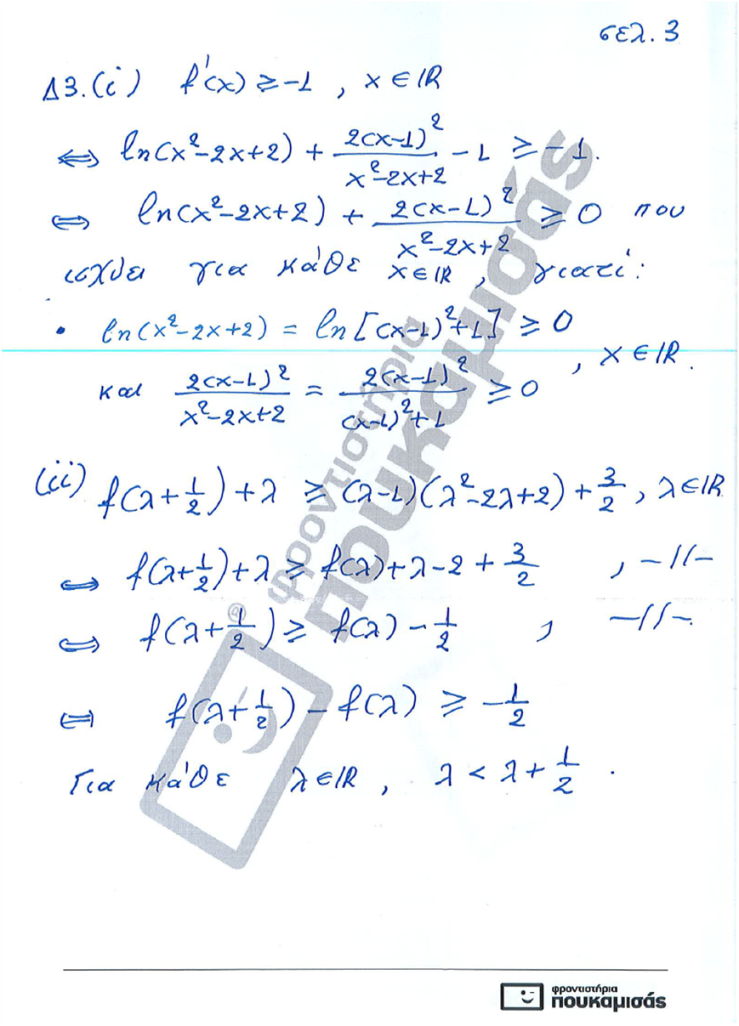 σελ. 3
Δ3. (i) f'(x) ≥ -1 , x ∈ ℝ
⟺ ln(x²-2x+2) + 2(x-1)²/(x²-2x+2) - 1 ≥ -1.
⟺ ln(x²-2x+2) + 2(x-1)²/(x²-2x+2) ≥ 0 που
ισχύει για κάθε x∈ℝ, γιατί:
• ln(x²-2x+2) = ln[(x-1)²+1] ≥ 0
και 2(x-1)²/(x²-2x+2) = 2(x-1)²/((x-1)²+1) ≥ 0 , x ∈ ℝ.
(ii) f(λ+1/2) + λ ≥ (λ-1)(λ²-2λ+2) + 3/2 , λ∈ℝ
⟺ f(λ+1/2) + λ ≥ f(λ) + λ - 2 + 3/2 , -//-
⟺ f(λ+1/2) ≥ f(λ) - 1/2 , -//-.
⟺ f(λ+1/2) - f(λ) ≥ -1/2
Για κάθε λ∈ℝ, λ < λ + 1/2 .
φροντιστήρια
πουκαμισάς
®
φροντιστήρια
πουκαμισάς